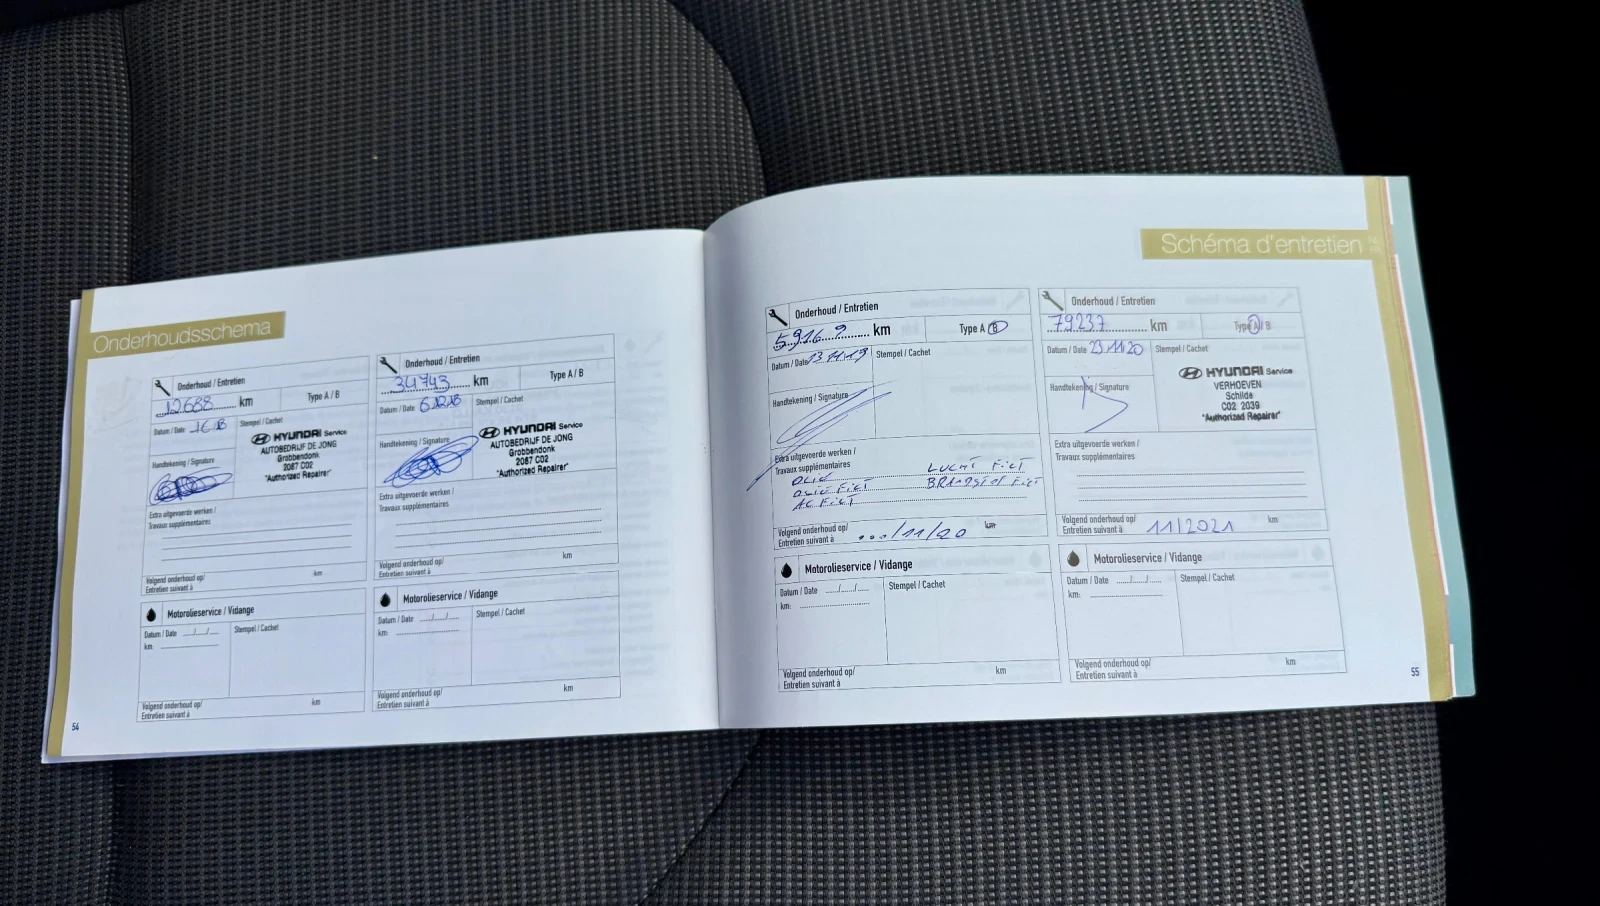 Onderhoudsschema
Onderhoud / Entretien
12688 km
Type A / B
Datum / Date
Stempel / Cachet
HYUNDAI Service
AUTOBEDRIJF DE JONG
Grobbendonk
2087 C02
"Authorized Repairer"
Handtekening / Signature
Extra uitgevoerde werken /
Travaux supplémentaires
Volgend onderhoud op/
Entretien suivant à
km
Motorolieservice / Vidange
Datum / Date ..../..../....
Stempel / Cachet
km:
Volgend onderhoud op/
Entretien suivant à
km
54
Onderhoud / Entretien
34743 km
Type A / B
Datum / Date 6.12.18
Stempel / Cachet
HYUNDAI Service
AUTOBEDRIJF DE JONG
Grobbendonk
2087 C02
"Authorized Repairer"
Handtekening / Signature
Extra uitgevoerde werken /
Travaux supplémentaires
Volgend onderhoud op/
Entretien suivant à
km
Motorolieservice / Vidange
Datum / Date ..../..../....
Stempel / Cachet
km:
Volgend onderhoud op/
Entretien suivant à
km
Schéma d'entretien
Onderhoud / Entretien
km
Type A / B
Datum / Date 13 11 19
Stempel / Cachet
Handtekening / Signature
Extra uitgevoerde werken /
Travaux supplémentaires
OLIE LUCHT FILT
OLIE FILT BRANDSTOF FILT
AC FILT
Volgend onderhoud op/
Entretien suivant à .../11/20 km
Motorolieservice / Vidange
Datum / Date ..../..../....
Stempel / Cachet
km:
Volgend onderhoud op/
Entretien suivant à
km
Onderhoud / Entretien
79237 km
Type A / B
Datum / Date 23/11/20
Stempel / Cachet
HYUNDAI Service
VERHOEVEN
Schilde
C02 2039
"Authorized Repairer"
Handtekening / Signature
Extra uitgevoerde werken /
Travaux supplémentaires
Volgend onderhoud op/
Entretien suivant à 11/2021 km
Motorolieservice / Vidange
Datum / Date ..../..../....
Stempel / Cachet
km:
Volgend onderhoud op/
Entretien suivant à
km
55